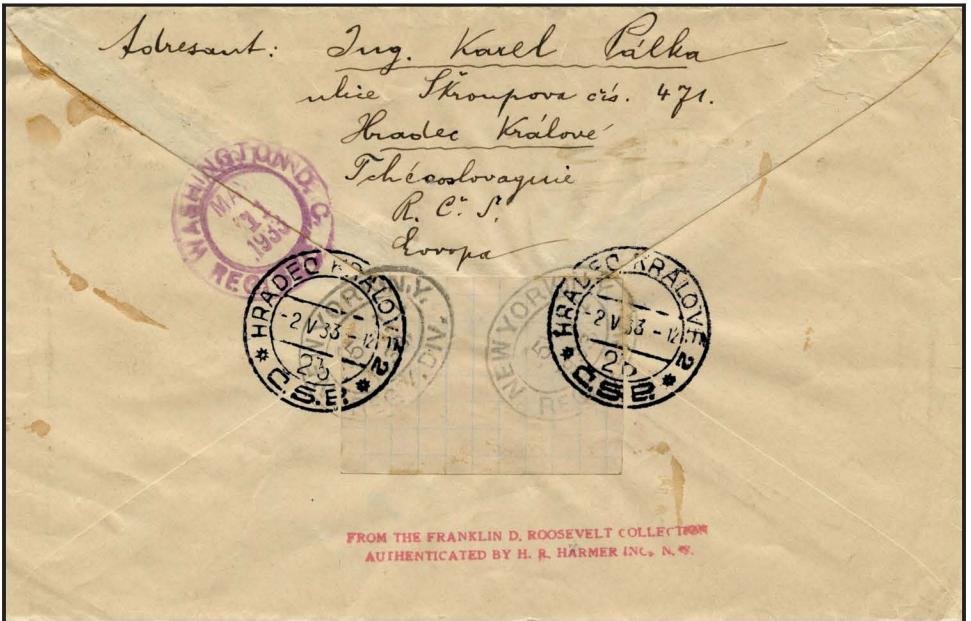 Adresant: Ing. Karel Pálka
ulice Škroupova čís. 471.
Hradec Králové
Tchécoslovaquie
R. Č. S.
Evropa
WASHINGTON, D. C.
1933
HRADEC KRÁLOVÉ 2
-2 V 33 -12
2b
* Č.S.P. *
NEW YORK, N.Y.
DIV.
NEW YORK
HRADEC KRÁLOVÉ 2
-2 V 33 -12
* Č.S.P. *
FROM THE FRANKLIN D. ROOSEVELT COLLECTION
AUTHENTICATED BY H. R. HARMER INC., N. Y.